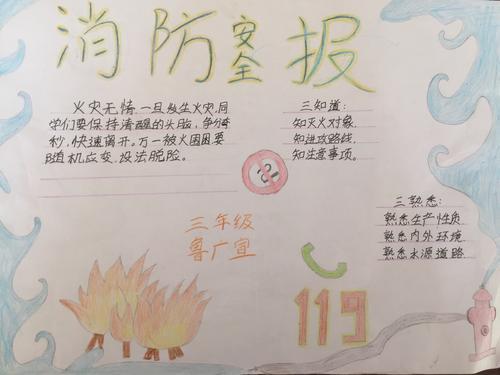 消防安全报
火灾无情一旦发生火灾,同
学们要保持清醒的头脑,争分夺
秒,快速离开。万一被火围困要
随机应变,设法脱险。
三知道:
知灭火对象
知进攻路线
知注意事项。
三熟悉:
熟悉生产性质
熟悉内外环境
熟悉水源道路
三年级
鲁广宣
119